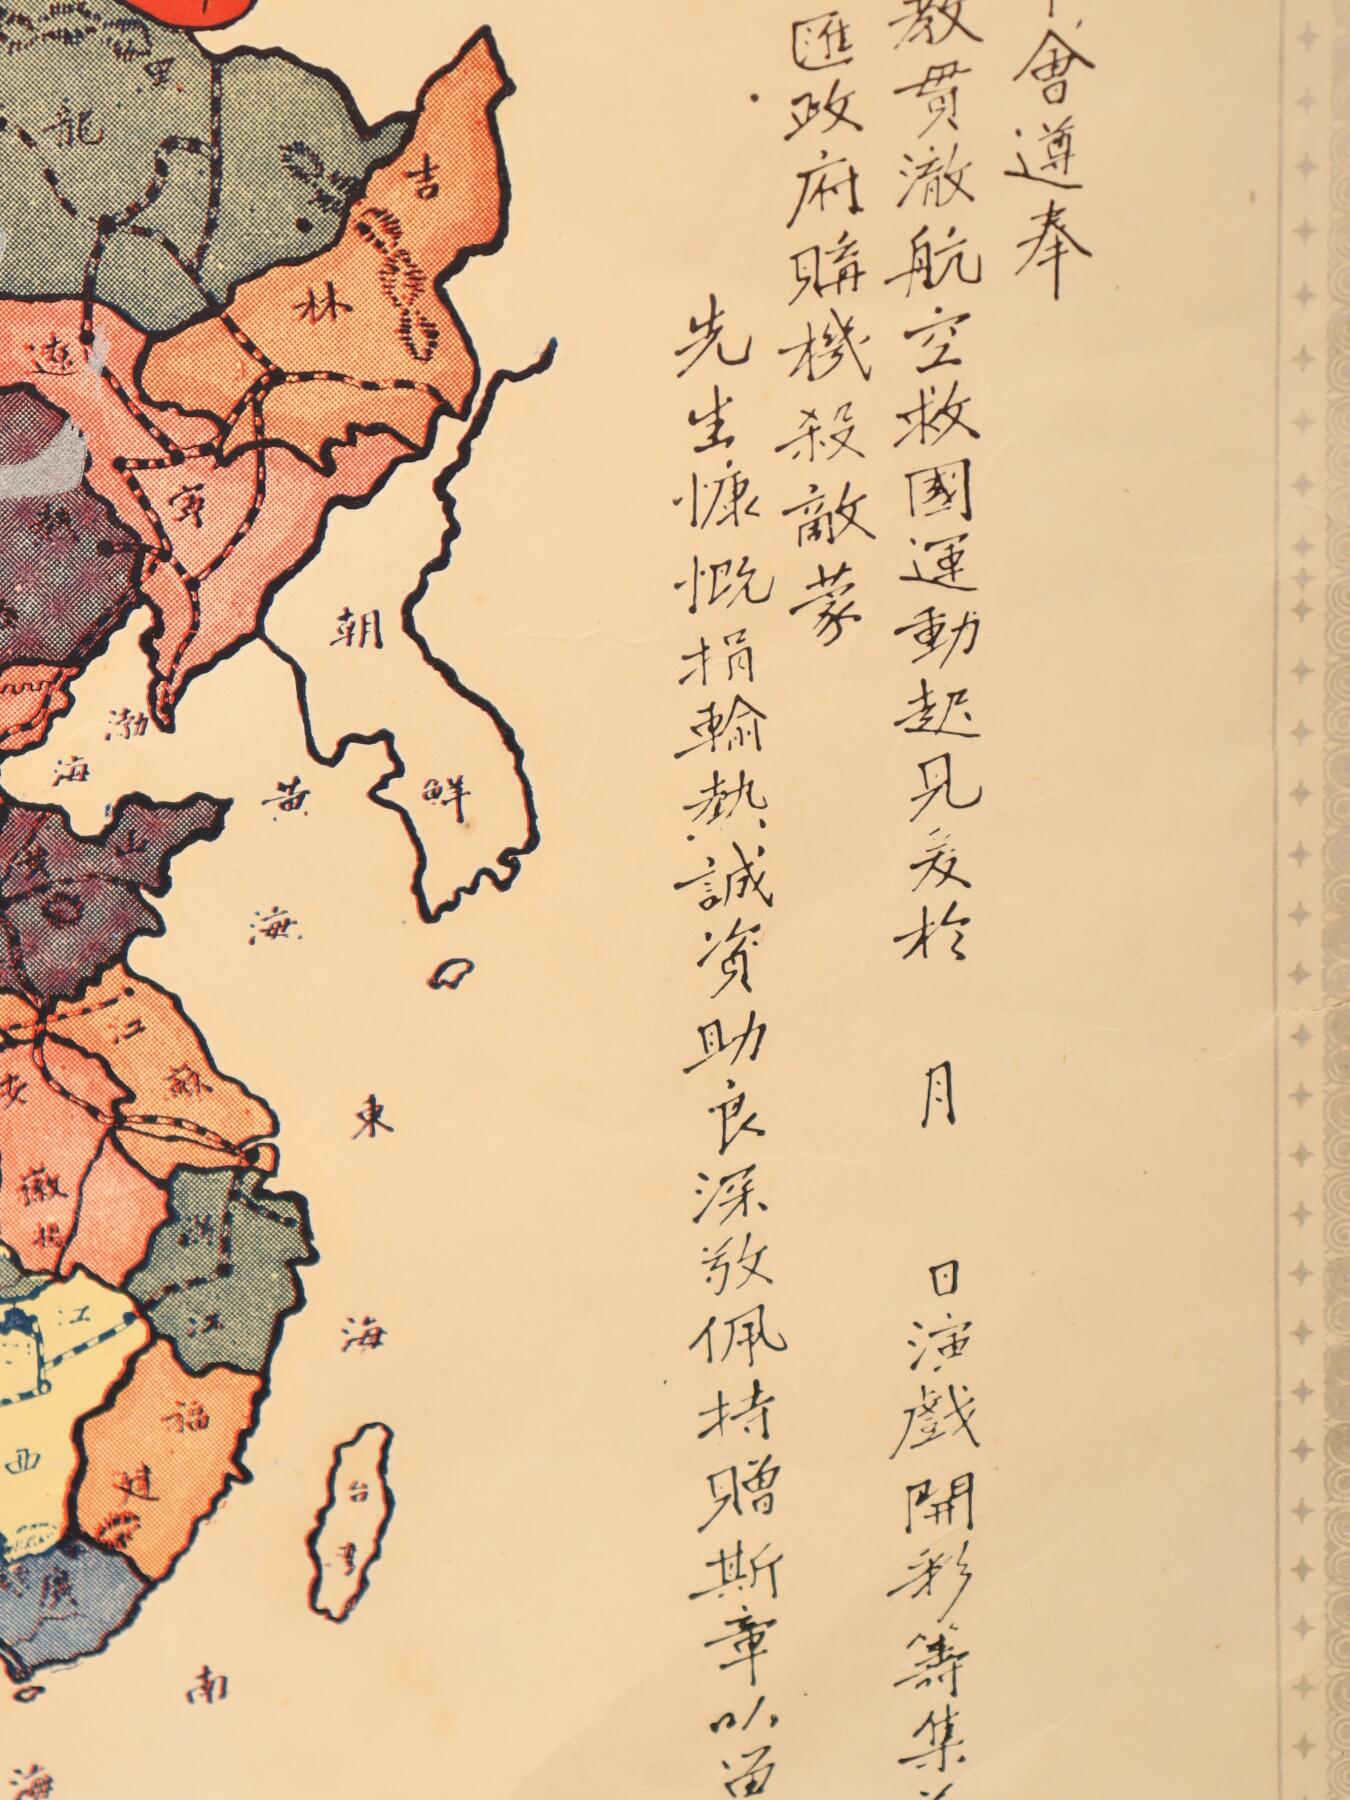 會遵奉
教貫澈航空救國運動起見爰於　月　日演戲開彩籌集
匯政府購機殺敵蒙
先生慷慨捐輸熱誠資助良深敬佩持贈斯章以留
黑龍
吉林
遼寧
熱
朝鮮
渤海
山
黃海
江蘇
安徽
東海
浙江
江西
福建
台灣
廣
南海